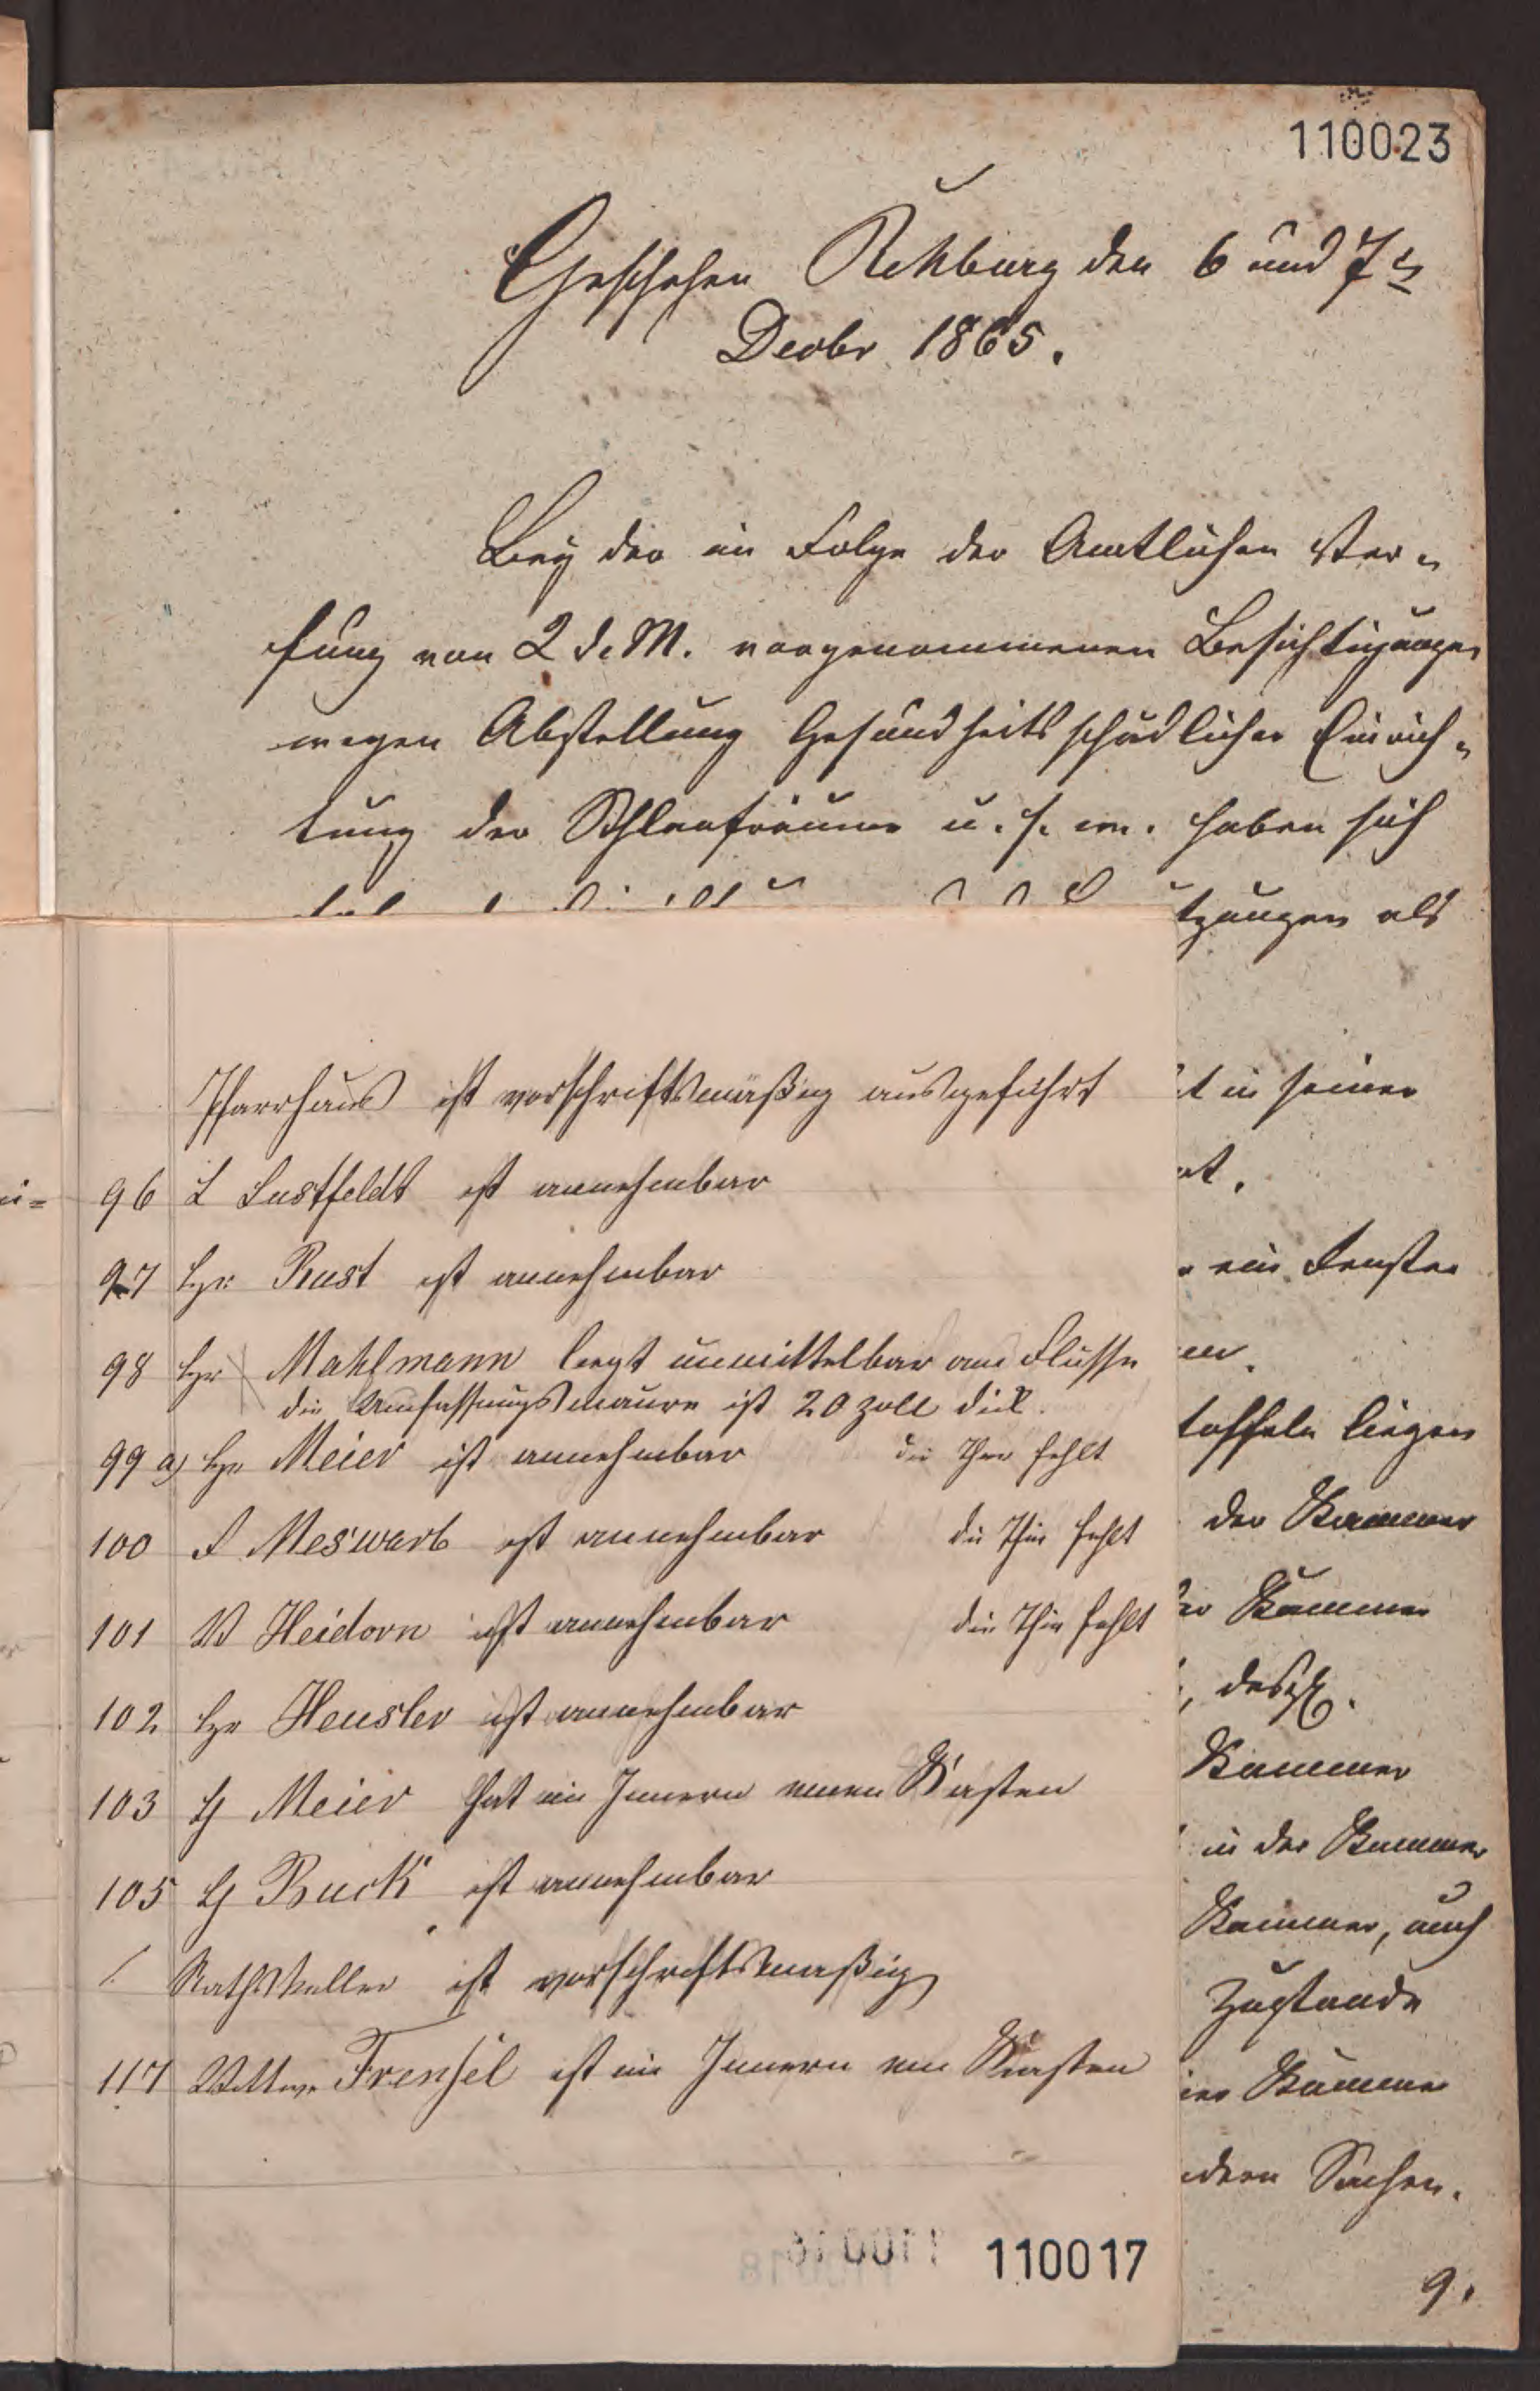 110023
Geschehen Rehburg den 6 und 7ten
Decbr 1865.
Bey der in Folge der Amtlichen Ver=
fung von 2 d. M. vorgenommenen Besichtigungen
wegen Abstellung Gesundheitsschädlicher Einrich=
tung der Schlafräume u. s. w. haben sich
tzungen als
t in seiner
et.
ein Fenster
en.
toffeln liegen
der Kammer
Kammer
, desgl.
Kammer
in der Kammer
Kammer, auch
Zustande
Kammer
dern Sachen.
9.
Pfarrhaus ist vorschriftsmäßig ausgeführt
96 L Lustfeldt ist annehmbar
97 Hr Rust ist annehmbar
98 Hr Mahlmann liegt unmittelbar am Flusse
die Umfassungsmauer ist 20 Zoll dick.
99 a) Hr Meier ist annehmbar die Thür fehlt
100 F Meswarb ist annehmbar die Thür fehlt
101 W Heidorn ist annehmbar die Thür fehlt
102 Hr Heusler ist annehmbar
103 H Meier hat im Innern einen Kasten
105 H Buck ist annehmbar
Rathskeller ist vorschriftsmäßig
117 Wittwe Frensel ist im Innern ein Kasten
110017